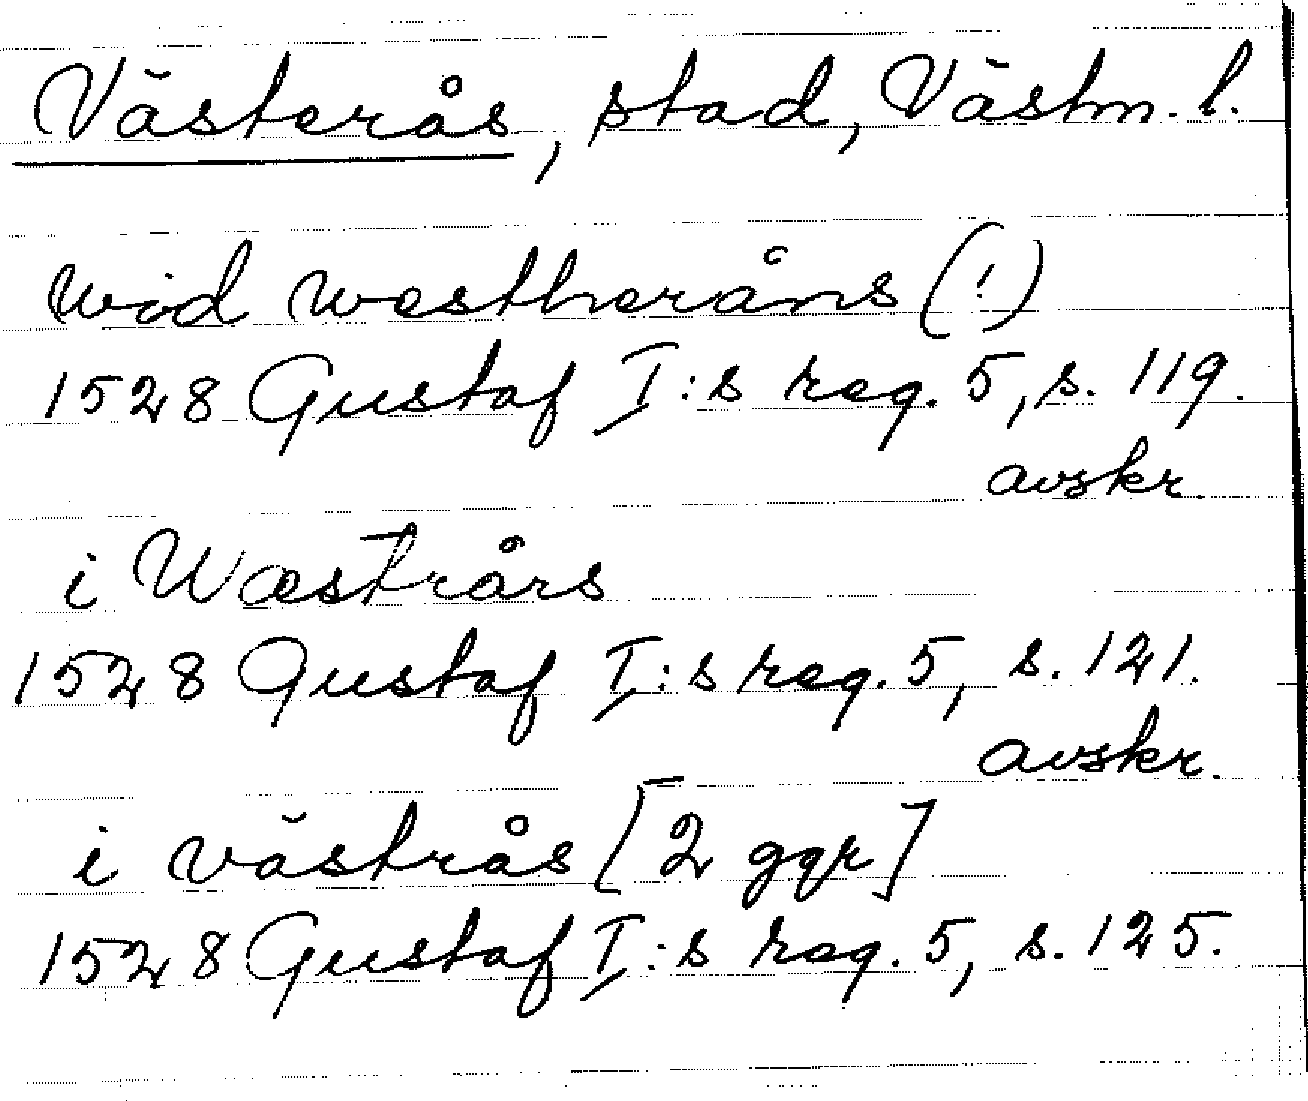 Västerås, stad, Västm. l.
wid westheråns (!)
1528 Gustaf I:s reg. 5, s. 119.
avskr.
i Wæstrårs
1528 Gustaf I:s reg. 5, s. 121.
avskr.
i västrås [2 ggr]
1528 Gustaf I:s reg. 5, s. 125.